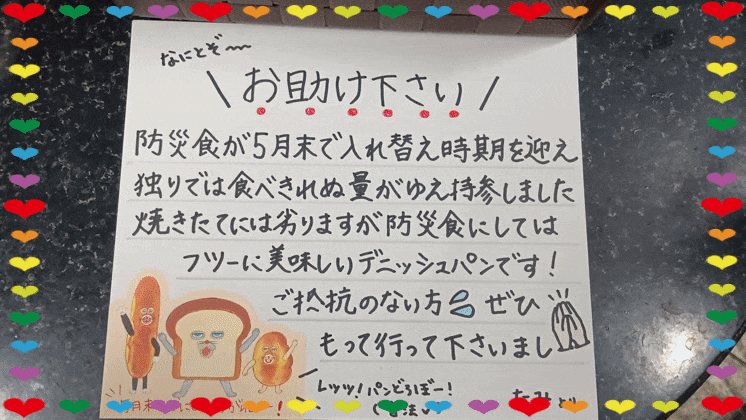 なにとぞ〜
\ お助け下さい /
防災食が5月末で入れ替え時期を迎え
独りでは食べきれぬ量がゆえ持参しました
焼きたてには劣りますが防災食にしては
フツーに美味しいデニッシュパンです!
ご抵抗のない方💦ぜひ
もって行って下さいまし
レッツ!パンどろぼー!